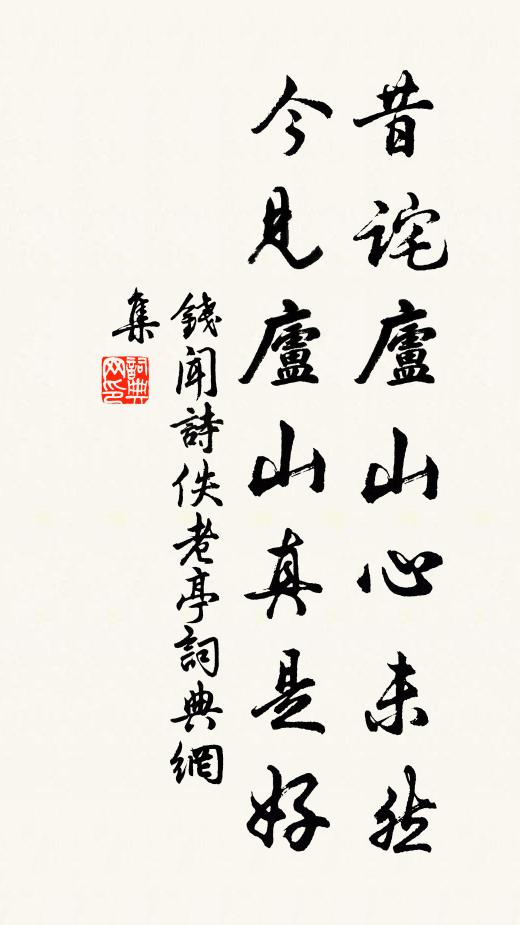 昔詫廬山心未然
今見廬山真是好
錢聞詩佚老亭詞典網
集
詞典網印